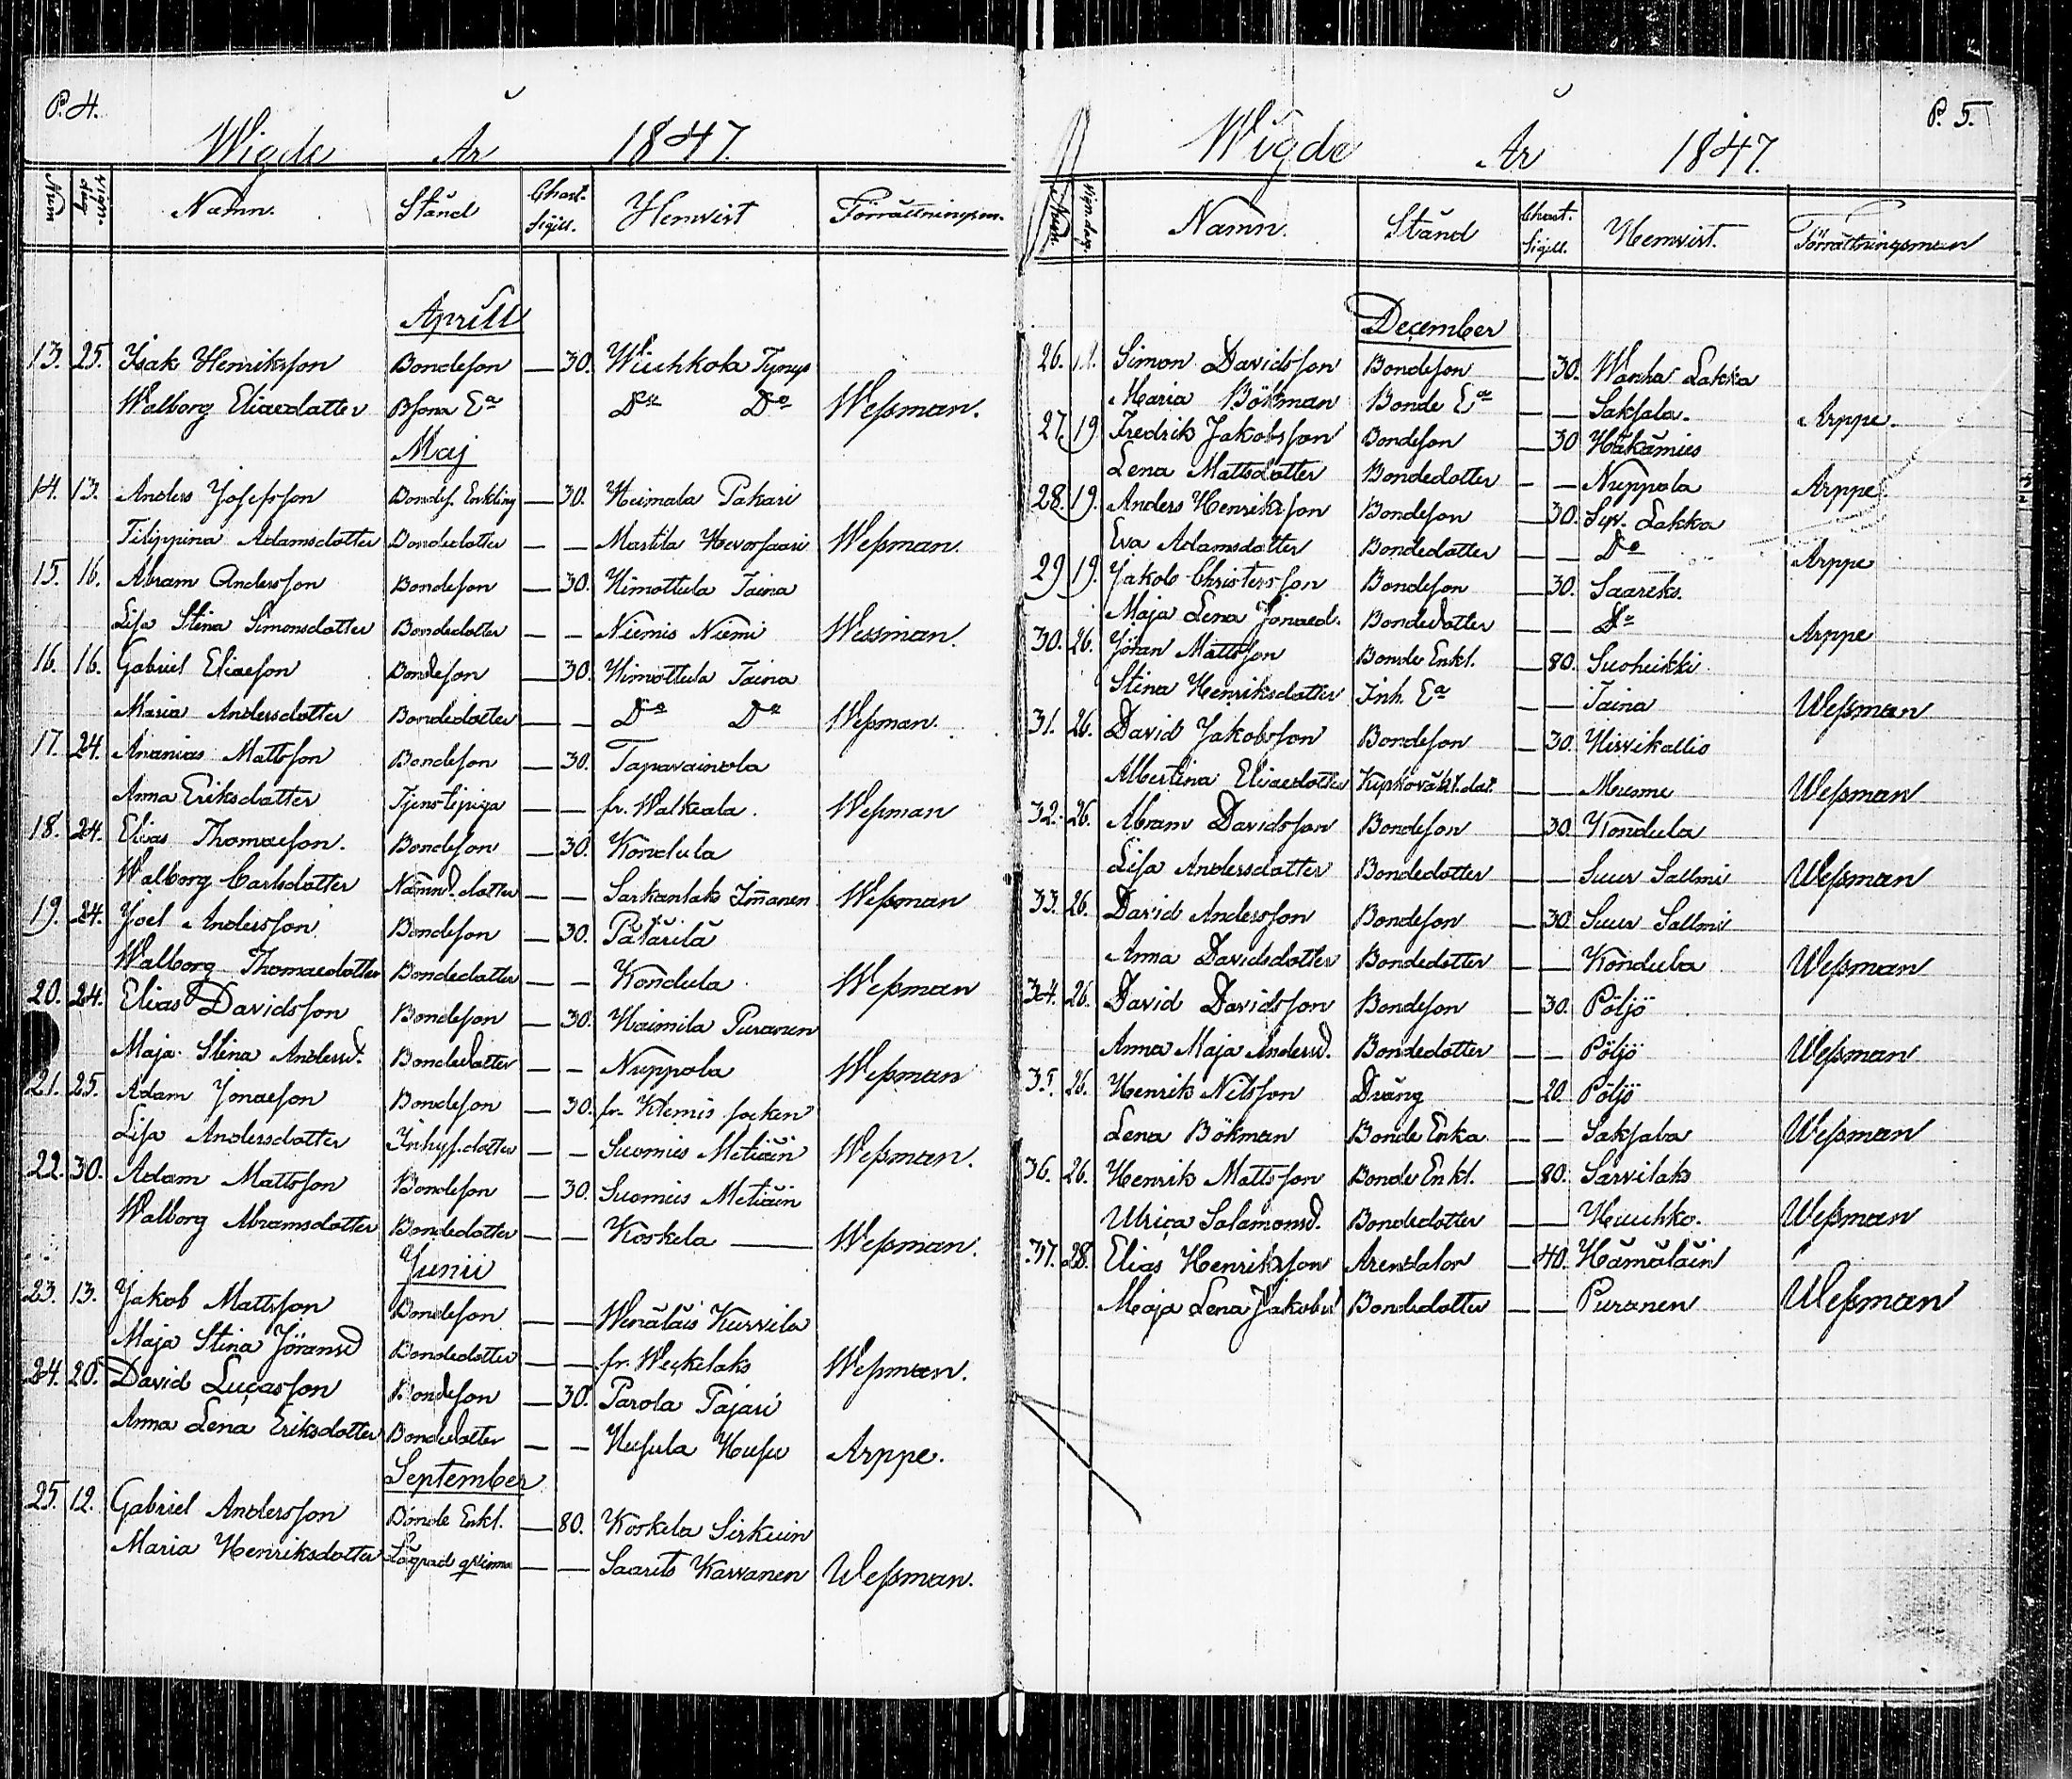 P. 4.
Wigde År 1847.
Num Vign.dag Namn. Stånd Chart. Sigill. Hemvist Förrättningsm.
Aprill
13. 25. Isak Henriksson Bondeson — 30. Wiuhkola Tynys
Walborg Eliaedotter Bsons Ea Do Do Wessman.
Maj
14. 13. Anders Josefsson Bondes. Enkling — 30. Heimala Pakari
Filippina Adamsdotter Bondedotter — — Martila Hevossaari Wessman.
15. 16. Abram Andersson Bondeson — 30. Himottula Taina
Lisa Stina Simonsdotter Bondedotter — — Niemis Niemi Wessman.
16. 16. Gabriel Eliaeson Bondeson — 30. Himottula Taina
Maria Andersdotter Bondedotter — — Do Do Wessman.
17. 24. Ananias Mattsson Bondeson — 30. Tapavainola
Anna Eriksdotter Tjenstepiga — — fr. Walkeala. Wessman
18. 24. Elias Thomaeson. Bondeson — 30. Kondula
Walborg Carlsdotter Nämnd.dotter — — Sarkanlaks Imanen Wessman
19. 24. Joel Andersson Bondeson — 30. Pätärilä
Walborg Thomaedotter Bondedotter — — Kondula Wessman
20. 24. Elias Davidsson Bondeson — 30. Haimila Puranen
Maja Stina Andersd. Bondedotter — — Nuppola Wessman
21. 25. Adam Jonaeson Bondeson — 30. fr. Klemis socken
Lisa Andersdotter Inhys.dotter — — Suomies Metiäin Wessman.
22. 30. Adam Mattsson Bondeson — 30. Suomies Metiäin
Walborg Abramsdotter Bondedotter — — Koskela — Wessman.
Junii
23. 13. Jakob Mattsson Bondeson — — Wenäläis Kurvila
Maja Stina Jöransd Bondedotter — — fr. Weckelaks Wessman.
24. 20. David Lucasson Bondeson — 30. Parola Pajari
Anna Lena Eriksdotter Bondedotter — — Husula Husu Arppe.
September
25. 12. Gabriel Andersson Bonde Enkl. — 80. Koskela Sirkiein
Maria Henriksdotter Lägrad qvinna — — Saarits Karvanen Wessman.
P. 5.
Wigde År 1847.
Num. Vign.dag. Namn. Stånd Chart. Sigill. Hemvist. Förrättningsman
December
26. 12. Simon Davidsson Bondeson — 30. Wanha Lakka
Maria Bökman Bonde Ea — — Saksala. Arppe.
27. 19. Fredrik Jakobsson Bondeson — 30 Häkämies
Lena Mattsdotter Bondedotter — — Nuppola Arppe
28. 19. Anders Henriksson Bondeson — 30. Syv. Lakka
Eva Adamsdotter Bondedotter — — Do Arppe
29 19. Jakob Christersson Bondeson — 30. Saareks.
Maja Lena Jonaed. Bondedotter — — Do Arppe
30. 26. Jöran Mattsson Bonde Enkl. — 80. Suoheikki
Stina Henriksdotter Inh. Ea — — Taina Wessman
31. 26. David Jakobsson Bondeson — 30. Hirvikallio
Albertina Eliaedotter Kyrkoväkt.dot. — — Meusme Wessman
32. 26. Abram Davidsson Bondeson — 30. Kondula
Lisa Andersdotter Bondedotter — — Suur Sallmi Wessman
33. 26. David Andersson Bondeson — 30. Suur Sallmi
Anna Davidsdotter Bondedotter — — Kondula Wessman
34. 26. David Davidsson Bondeson — 30. Pöljö
Anna Maja Andersd. Bondedotter — — Pöljö Wessman
35. 26. Henrik Nilsson Dräng — 20. Pöljö
Lena Bökman Bonde Enka — — Saksala Wessman
36. 26. Henrik Mattsson Bonde Enkl. — 80. Särvilaks
Ulrica Salamonsd. Bondedotter — — Huuhko. Wessman
37. 28. Elias Henriksson Arendator — 40. Hämäläin
Maja Lena Jakobsd Bondedotter — — Puranen Wessman